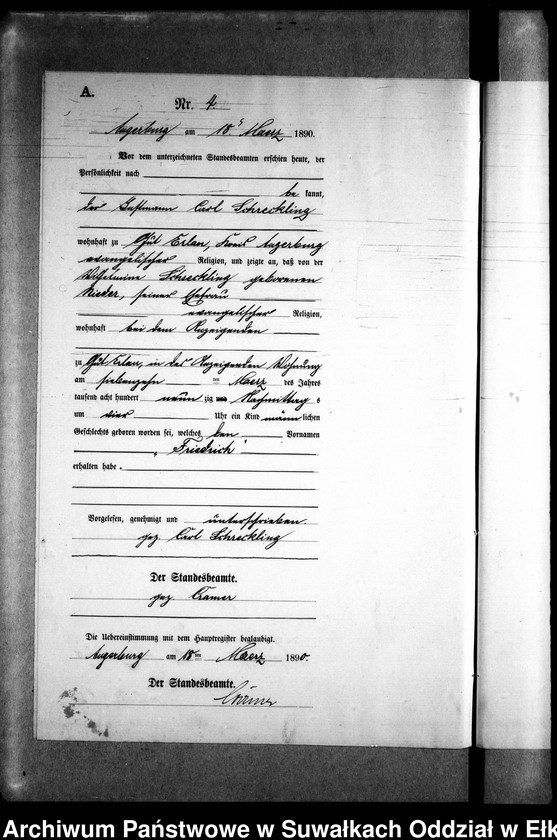 A.
Nr. 4.
Angerburg am 18ᵗ Maerz 1890.
Vor dem unterzeichneten Standesbeamten erschien heute, der
Persönlichkeit nach
be kannt,
der Instmann Carl Schreckling
wohnhaft zu Gut Erlau, Kreis Angerburg
evangelischer Religion, und zeigte an, daß von der
Wilhelmine Schreckling geborenen
Rieder, seiner Ehefrau
evangelischer Religion,
wohnhaft bei dem Anzeigenden
zu Gut Erlau, in des Anzeigenden Wohnung
am siebenzehn ten Maerz des Jahres
tausend acht hundert neun zig Nachmittags
um vier Uhr ein Kind männ lichen
Geschlechts geboren worden sei, welches den Vornamen
„Friedrich“
erhalten habe.
Vorgelesen, genehmigt und unterschrieben.
gez. Carl Schreckling
Der Standesbeamte.
gez. Cramer
Die Uebereinstimmung mit dem Hauptregister beglaubigt.
Angerburg am 18ten Maerz 1890.
Der Standesbeamte.
Archiwum Państwowe w Suwałkach Oddział w Ełk